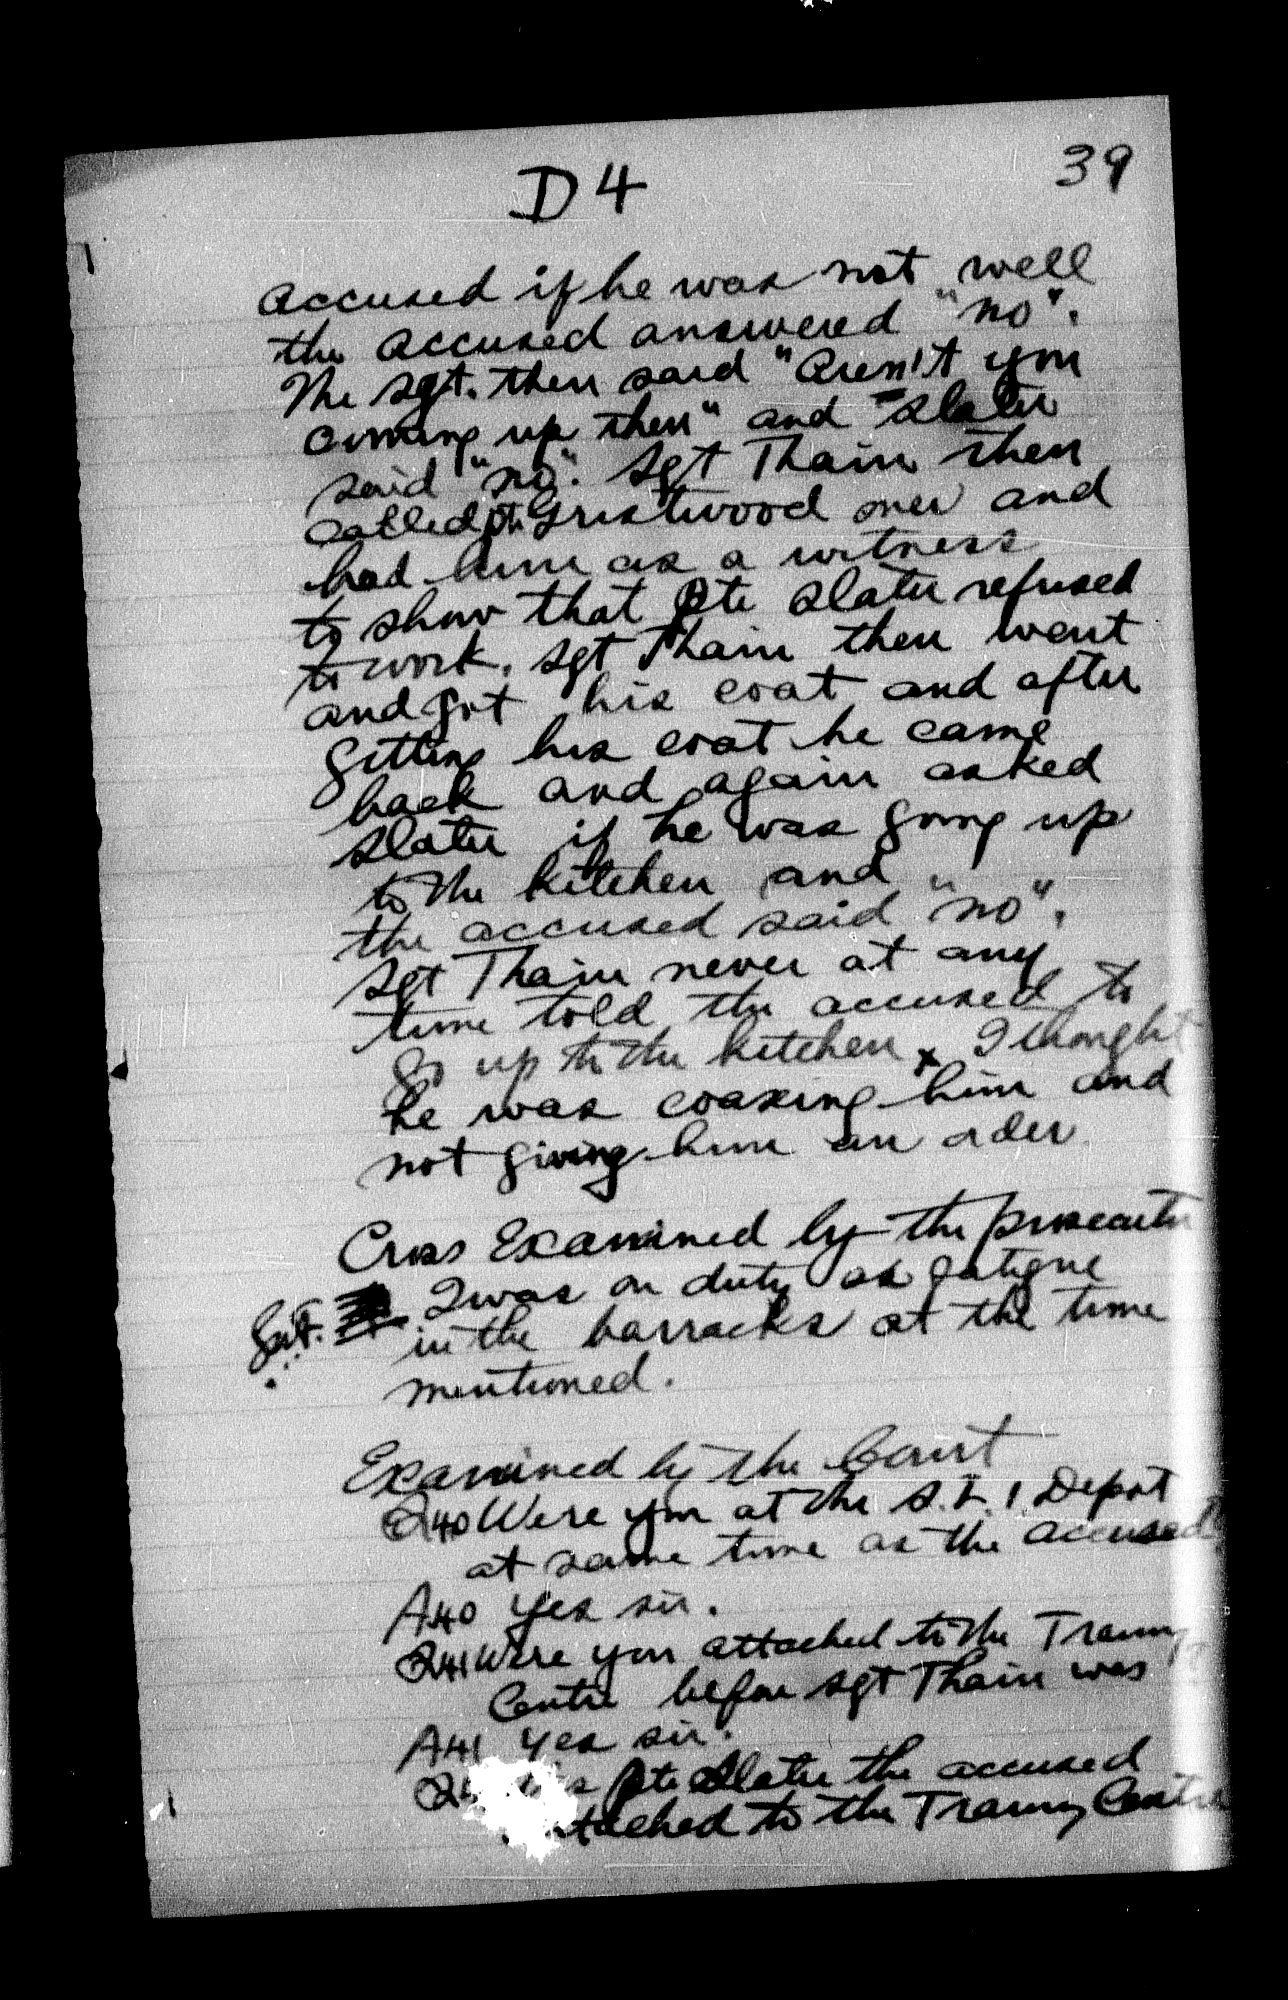 D 4
39
accused if he was not well
the accused answered "no".
The sgt. then said "aren't you
coming up then" and Slater
said "no". Sgt Thain then
called Pte Gristwood over and
had him as a witness
to show that Pte Slater refused
to work. Sgt Thain then went
and got his coat and after
getting his coat he came
back and again asked
Slater if he was going up
to the kitchen and
the accused said "no".
Sgt Thain never at any
time told the accused to
go up to the kitchen x I thought
he was coaxing him and
not giving him an order
Cross Examined by the prosecutor
I was on duty as fatigue
in the barracks at the time
mentioned.
Examined by the Court
Q40 Were you at the S.L.I. Depot
at same time as the accused
A40 Yes sir.
Q41 Were you attached to the Traing
Centre before Sgt Thain was
A41 Yes sir.
Pte Slater the accused
attached to the Traing Centre